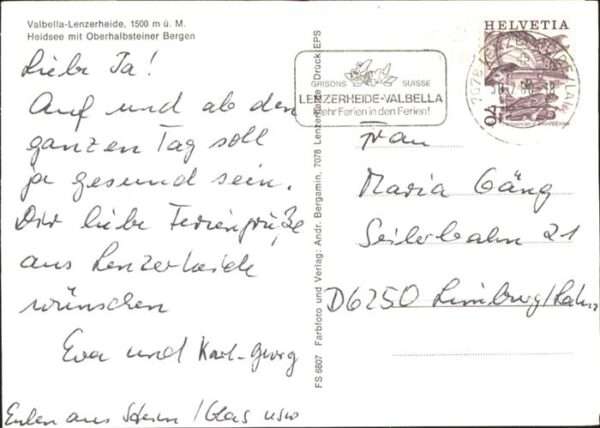 Valbella-Lenzerheide, 1500 m ü. M.
Heidsee mit Oberhalbsteiner Bergen
Liebe Ia!
Auf und ab den
ganzen Tag soll
ja gesund sein.
Dir liebe Feriengrüße
aus Lenzerheide
wünschen
Eva und Karl-Georg
Eulen aus Stein / Glas usw
FS 6807 Farbfoto und Verlag: Andr. Bergamin, 7078 Lenzerheide Druck: EPS
GRISONS SUISSE
LENZERHEIDE-VALBELLA
Mehr Ferien in den Ferien!
HELVETIA
7078
Frau
Maria Gäng
Seilerbahn 21
D6250 Limburg/Lahn